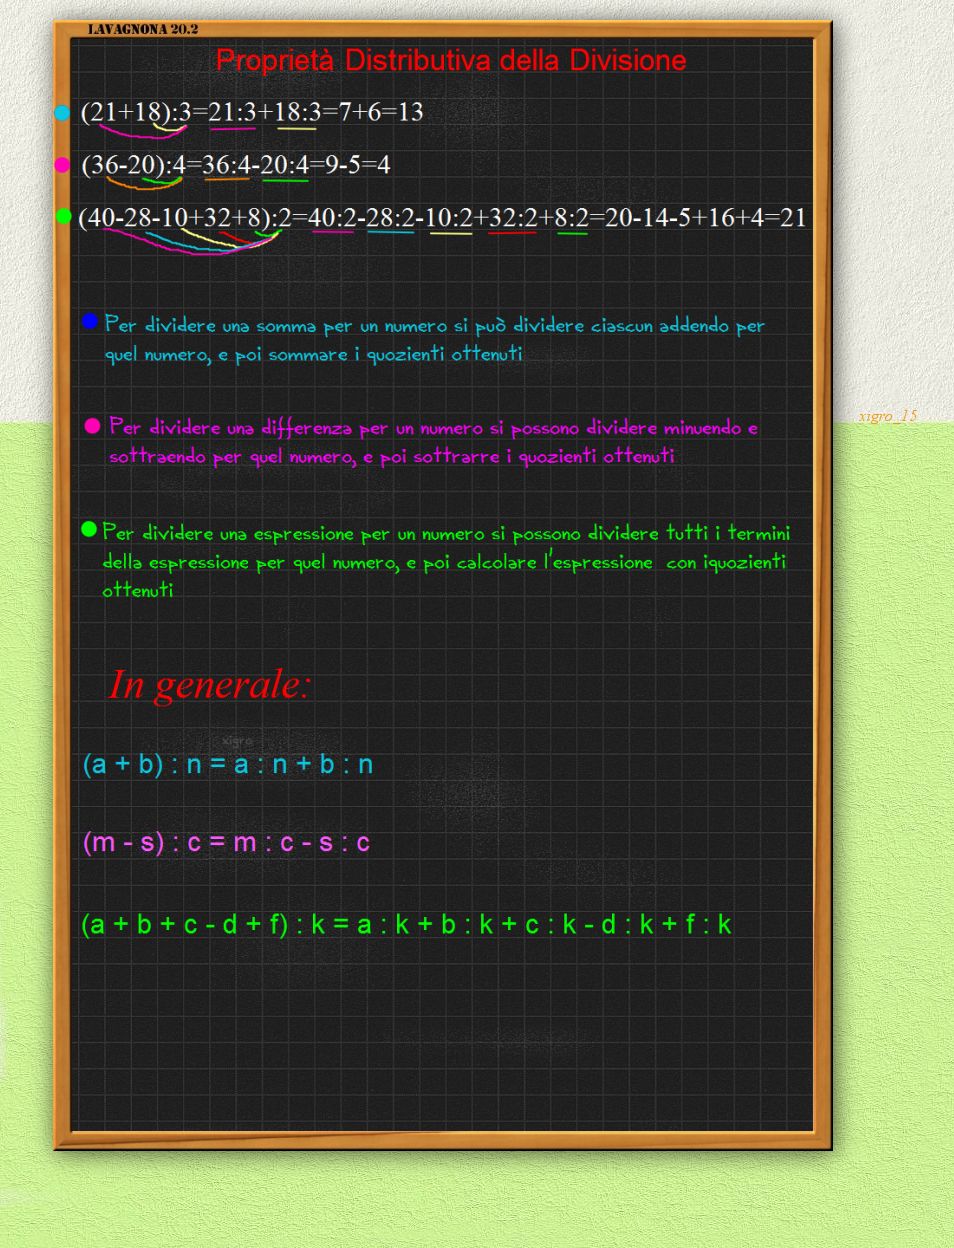 LAVAGNONA 20.2
Proprietà Distributiva della Divisione
(21+18):3=21:3+18:3=7+6=13
(36-20):4=36:4-20:4=9-5=4
(40-28-10+32+8):2=40:2-28:2-10:2+32:2+8:2=20-14-5+16+4=21
Per dividere una somma per un numero si può dividere ciascun addendo per
quel numero, e poi sommare i quozienti ottenuti
xigro_15
Per dividere una differenza per un numero si possono dividere minuendo e
sottraendo per quel numero, e poi sottrarre i quozienti ottenuti
Per dividere una espressione per un numero si possono dividere tutti i termini
della espressione per quel numero, e poi calcolare l'espressione con iquozienti
ottenuti
In generale:
xigro
(a + b) : n = a : n + b : n
(m - s) : c = m : c - s : c
(a + b + c - d + f) : k = a : k + b : k + c : k - d : k + f : k